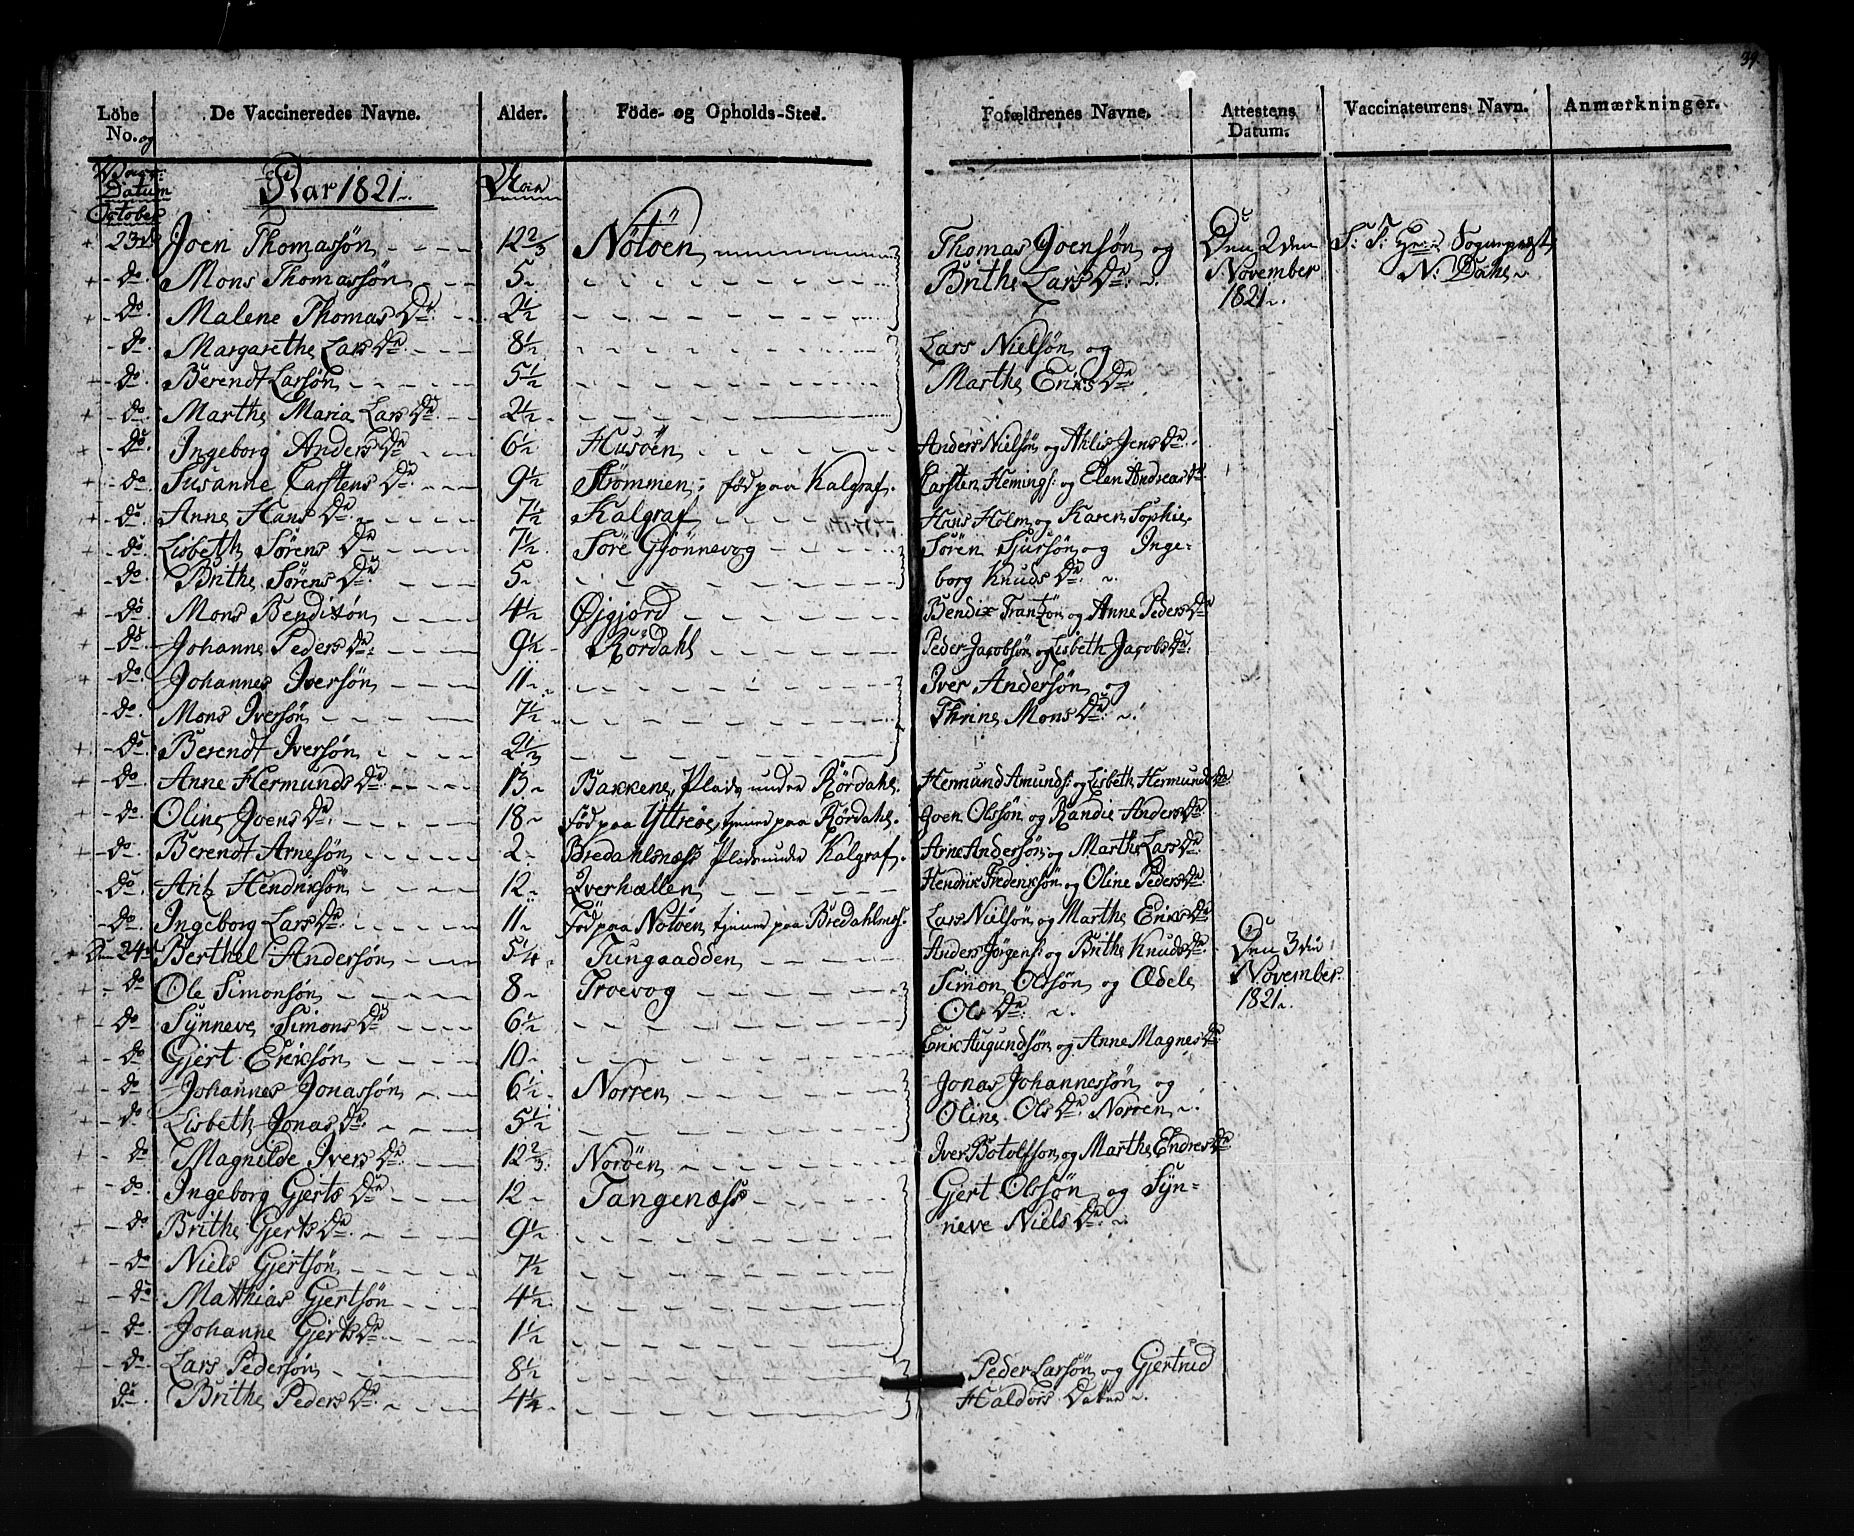 34
Löbe No. og De Vaccineredes Navne. Alder. Föde- og Opholds-Sted. Forældrenes Navne. Attestens Datum. Vaccinateurens Navn. Anmærkninger.
Datum Aar 1821
October
+ 23de Joen Thomassön 12 2/3 Nötöen Thomas Joensön og Den 2den S: T: Hr: Sogneprest
+ -do. Mons Thomassön 5 Brithe Lars Dr. November N: Dahl
+ -do. Malene Thomas Dr. 2 1/2 1821
-do. Margarethe Lars Dr. 8 1/2 Lars Nielsön og
+ -do. Berendt Larsön 5 1/2 Marthe Eriks Dr.
+ -do. Marthe Maria Lars Dr. 2 1/2
+ -do. Ingeborg Anders Dr. 6 1/2 Husöen Anders Nielsön og Ahlis Jens Dr.
+ -do. Susanne Carstens Dr. 9 1/2 Strömmen, föd paa Kalgraf. Carsten Hemings: og Elen Andreas Dr.
+ -do. Anne Hans Dr. 7 1/2 Kalgraf Hans Holm og Karen Sophie
+ -do. Lisbeth Sörens Dr. 7 1/2 Söre Gjönnevog Sören Sjursön og Inge-
-do. Brithe Sörens Dr. 5 borg Knuds Dr.
+ -do. Mons Bendixön 4 1/2 Øigjord Bendix Frantzön og Anne Peders Dr.
+ -do. Johanne Peders Dr. 9 1/2 Rördahl Peder Jacobsön og Lisbeth Jacobs Dr.
+ -do. Johannes Iversön 11 Iver Andersön og
-do. Mons Iversön 7 1/2 Thrine Mons Dr.
+ -do. Berendt Iversön 2 1/3
+ -do. Anne Hermunds Dr. 13 Bakkene, Plads under Rördahl. Hermund Amunds: og Lisbeth Hermunds Dr.
+ -do. Oline Joens Dr. 18 föd paa Yttröe, tjener paa Rördahl. Joen Olssön og Randie Anders Dr.
+ -do. Berendt Arnesön 2 Bredahlsnæss Plads under Kalgraf. Arne Andersön og Marthe Lars Dr.
-do. Aritz Hendriksön 12 Qverhællen Hendrik Frederiksön og Oline Peders Dr.
+ -do. Ingeborg Lars Dr. 11 Föd paa Nötöen, tjener paa Bredahlsnes. Lars Nielsön og Marthe Eriks Dr.
+ Den 24de Berthel Andersön 5 1/4 Tungaadden Anders Jörgens: og Brithe Knuds Dr. Den 3die
+ -do Ole Simonsön 8 Troevog Simon Olssön og Ædele November
+ -do Synneve Simons Dr. 6 1/2 Ols Dr. 1821
+ -do Gjert Eriksön 10 Erik Augundsön og Anne Magnes Dr.
+ -do Johannes Jonassön 6 1/2 Norren Jonas Johannessön og
+ -do Lisbeth Jonas Dr. 5 1/2 Oline Ols Dr. Norren
-do Magnilde Ivers Dr. 12 2/3 Noröen Iver Botolfsön og Marthe Endres Dr.
+ -do. Ingeborg Gjerts Dr. 12 Tangenæss Gjert Olssön og Syn-
+ -do. Brithe Gjerts Dr. 9 1/2 neve Niels Dr.
+ -do Niels Gjertsön 7 1/2
+ -do Matthias Gjertsön 4 1/2
+ -do. Johanne Gjerts Dr. 1 1/2
+ -do Lars Pedersön 8 1/2 Peder Larsön og Gjertrud
do. Brithe Peders Dr. 4 1/4 Haldors Datter